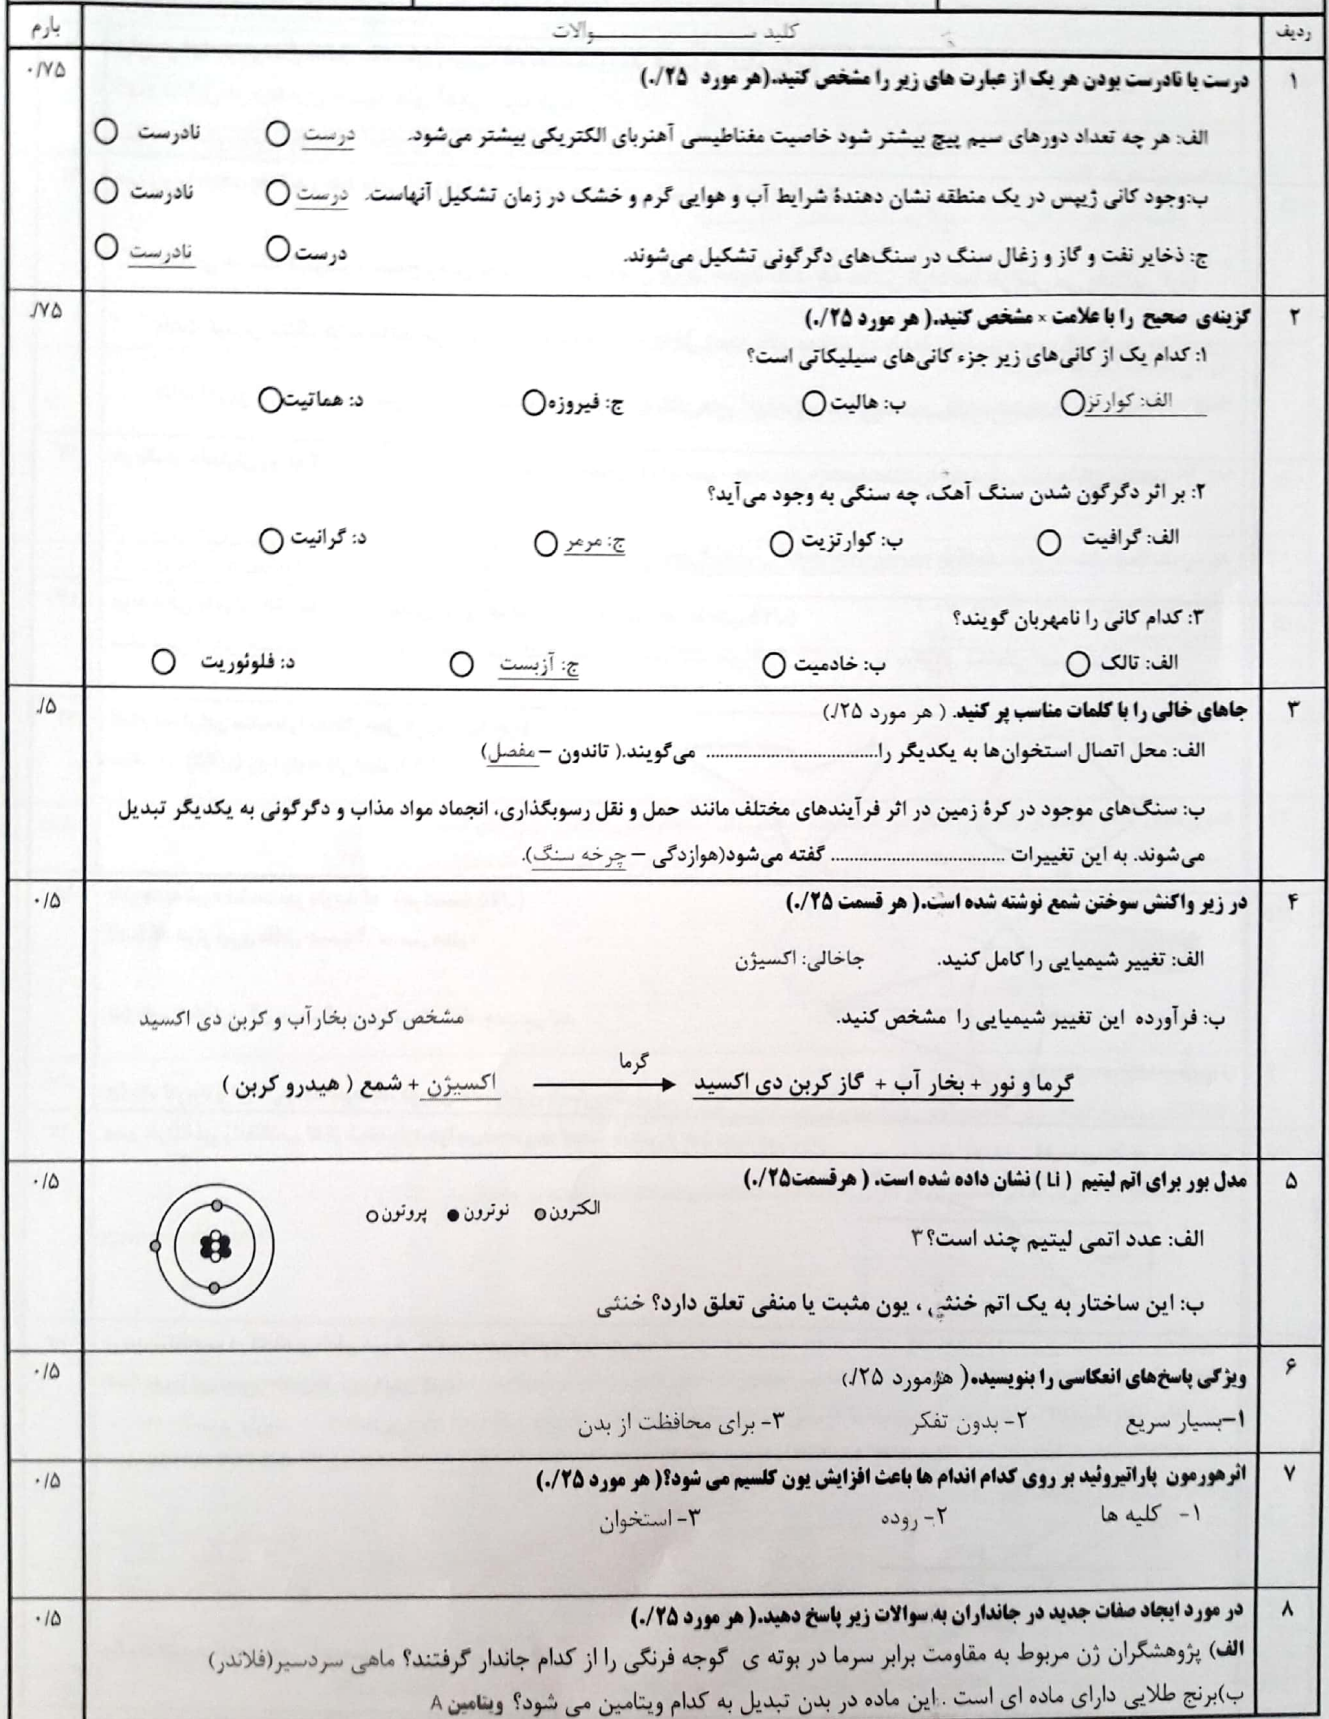 ردیف کلید ســـــــوالات بارم
۱ درست یا نادرست بودن هر یک از عبارت های زیر را مشخص کنید.(هر مورد ۲۵/.) ۰/۷۵
الف: هر چه تعداد دورهای سیم پیچ بیشتر شود خاصیت مغناطیسی آهنربای الکتریکی بیشتر می‌شود. درست نادرست
ب:وجود کانی ژیپس در یک منطقه نشان دهندۀ شرایط آب و هوایی گرم و خشک در زمان تشکیل آنهاست. درست نادرست
ج: ذخایر نفت و گاز و زغال سنگ در سنگ‌های دگرگونی تشکیل می‌شوند. درست نادرست
۲ گزینه‌ی صحیح را با علامت × مشخص کنید.( هر مورد ۲۵/.) /۷۵
۱: کدام یک از کانی‌های زیر جزء کانی‌های سیلیکاتی است؟
الف: کوارتز ب: هالیت ج: فیروزه د: هماتیت
۲: بر اثر دگرگون شدن سنگ آهک، چه سنگی به وجود می‌آید؟
الف: گرافیت ب: کوارتزیت ج: مرمر د: گرانیت
۳: کدام کانی را نامهربان گویند؟
الف: تالک ب: خادمیت ج: آزبست د: فلوئوریت
۳ جاهای خالی را با کلمات مناسب پر کنید. ( هر مورد ۲۵/.) /۵
الف: محل اتصال استخوان‌ها به یکدیگر را.................................... می‌گویند.( تاندون – مفصل)
ب: سنگ‌های موجود در کرۀ زمین در اثر فرآیندهای مختلف مانند حمل و نقل رسوبگذاری، انجماد مواد مذاب و دگرگونی به یکدیگر تبدیل
می‌شوند. به این تغییرات .................................... گفته می‌شود(هوازدگی – چرخه سنگ).
۴ در زیر واکنش سوختن شمع نوشته شده است.( هر قسمت ۲۵/.) ۰/۵
الف: تغییر شیمیایی را کامل کنید. جاخالی: اکسیژن
ب: فرآورده این تغییر شیمیایی را مشخص کنید. مشخص کردن بخارآب و کربن دی اکسید
گرما
گرما و نور + بخار آب + گاز کربن دی اکسید ⟶ اکسیژن + شمع ( هیدرو کربن )
۵ مدل بور برای اتم لیتیم ( Li ) نشان داده شده است. ( هرقسمت۲۵/.) ۰/۵
الکترون نوترون پروتون
الف: عدد اتمی لیتیم چند است؟ ۳
ب: این ساختار به یک اتم خنثی ، یون مثبت یا منفی تعلق دارد؟ خنثی
۶ ویژگی پاسخ‌های انعکاسی را بنویسید.( هرمورد ۲۵/.) ۰/۵
۱–بسیار سریع ۲- بدون تفکر ۳- برای محافظت از بدن
۷ اثرهورمون پاراتیروئید بر روی کدام اندام ها باعث افزایش یون کلسیم می شود؟( هر مورد ۲۵/.) ۰/۵
۱- کلیه ها ۲- روده ۳- استخوان
۸ در مورد ایجاد صفات جدید در جانداران به سوالات زیر پاسخ دهید.( هر مورد ۲۵/.) ۰/۵
الف) پژوهشگران ژن مربوط به مقاومت برابر سرما در بوته ی گوجه فرنگی را از کدام جاندار گرفتند؟ ماهی سردسیر(فلاندر)
ب)برنج طلایی دارای ماده ای است . این ماده در بدن تبدیل به کدام ویتامین می شود؟ ویتامین A